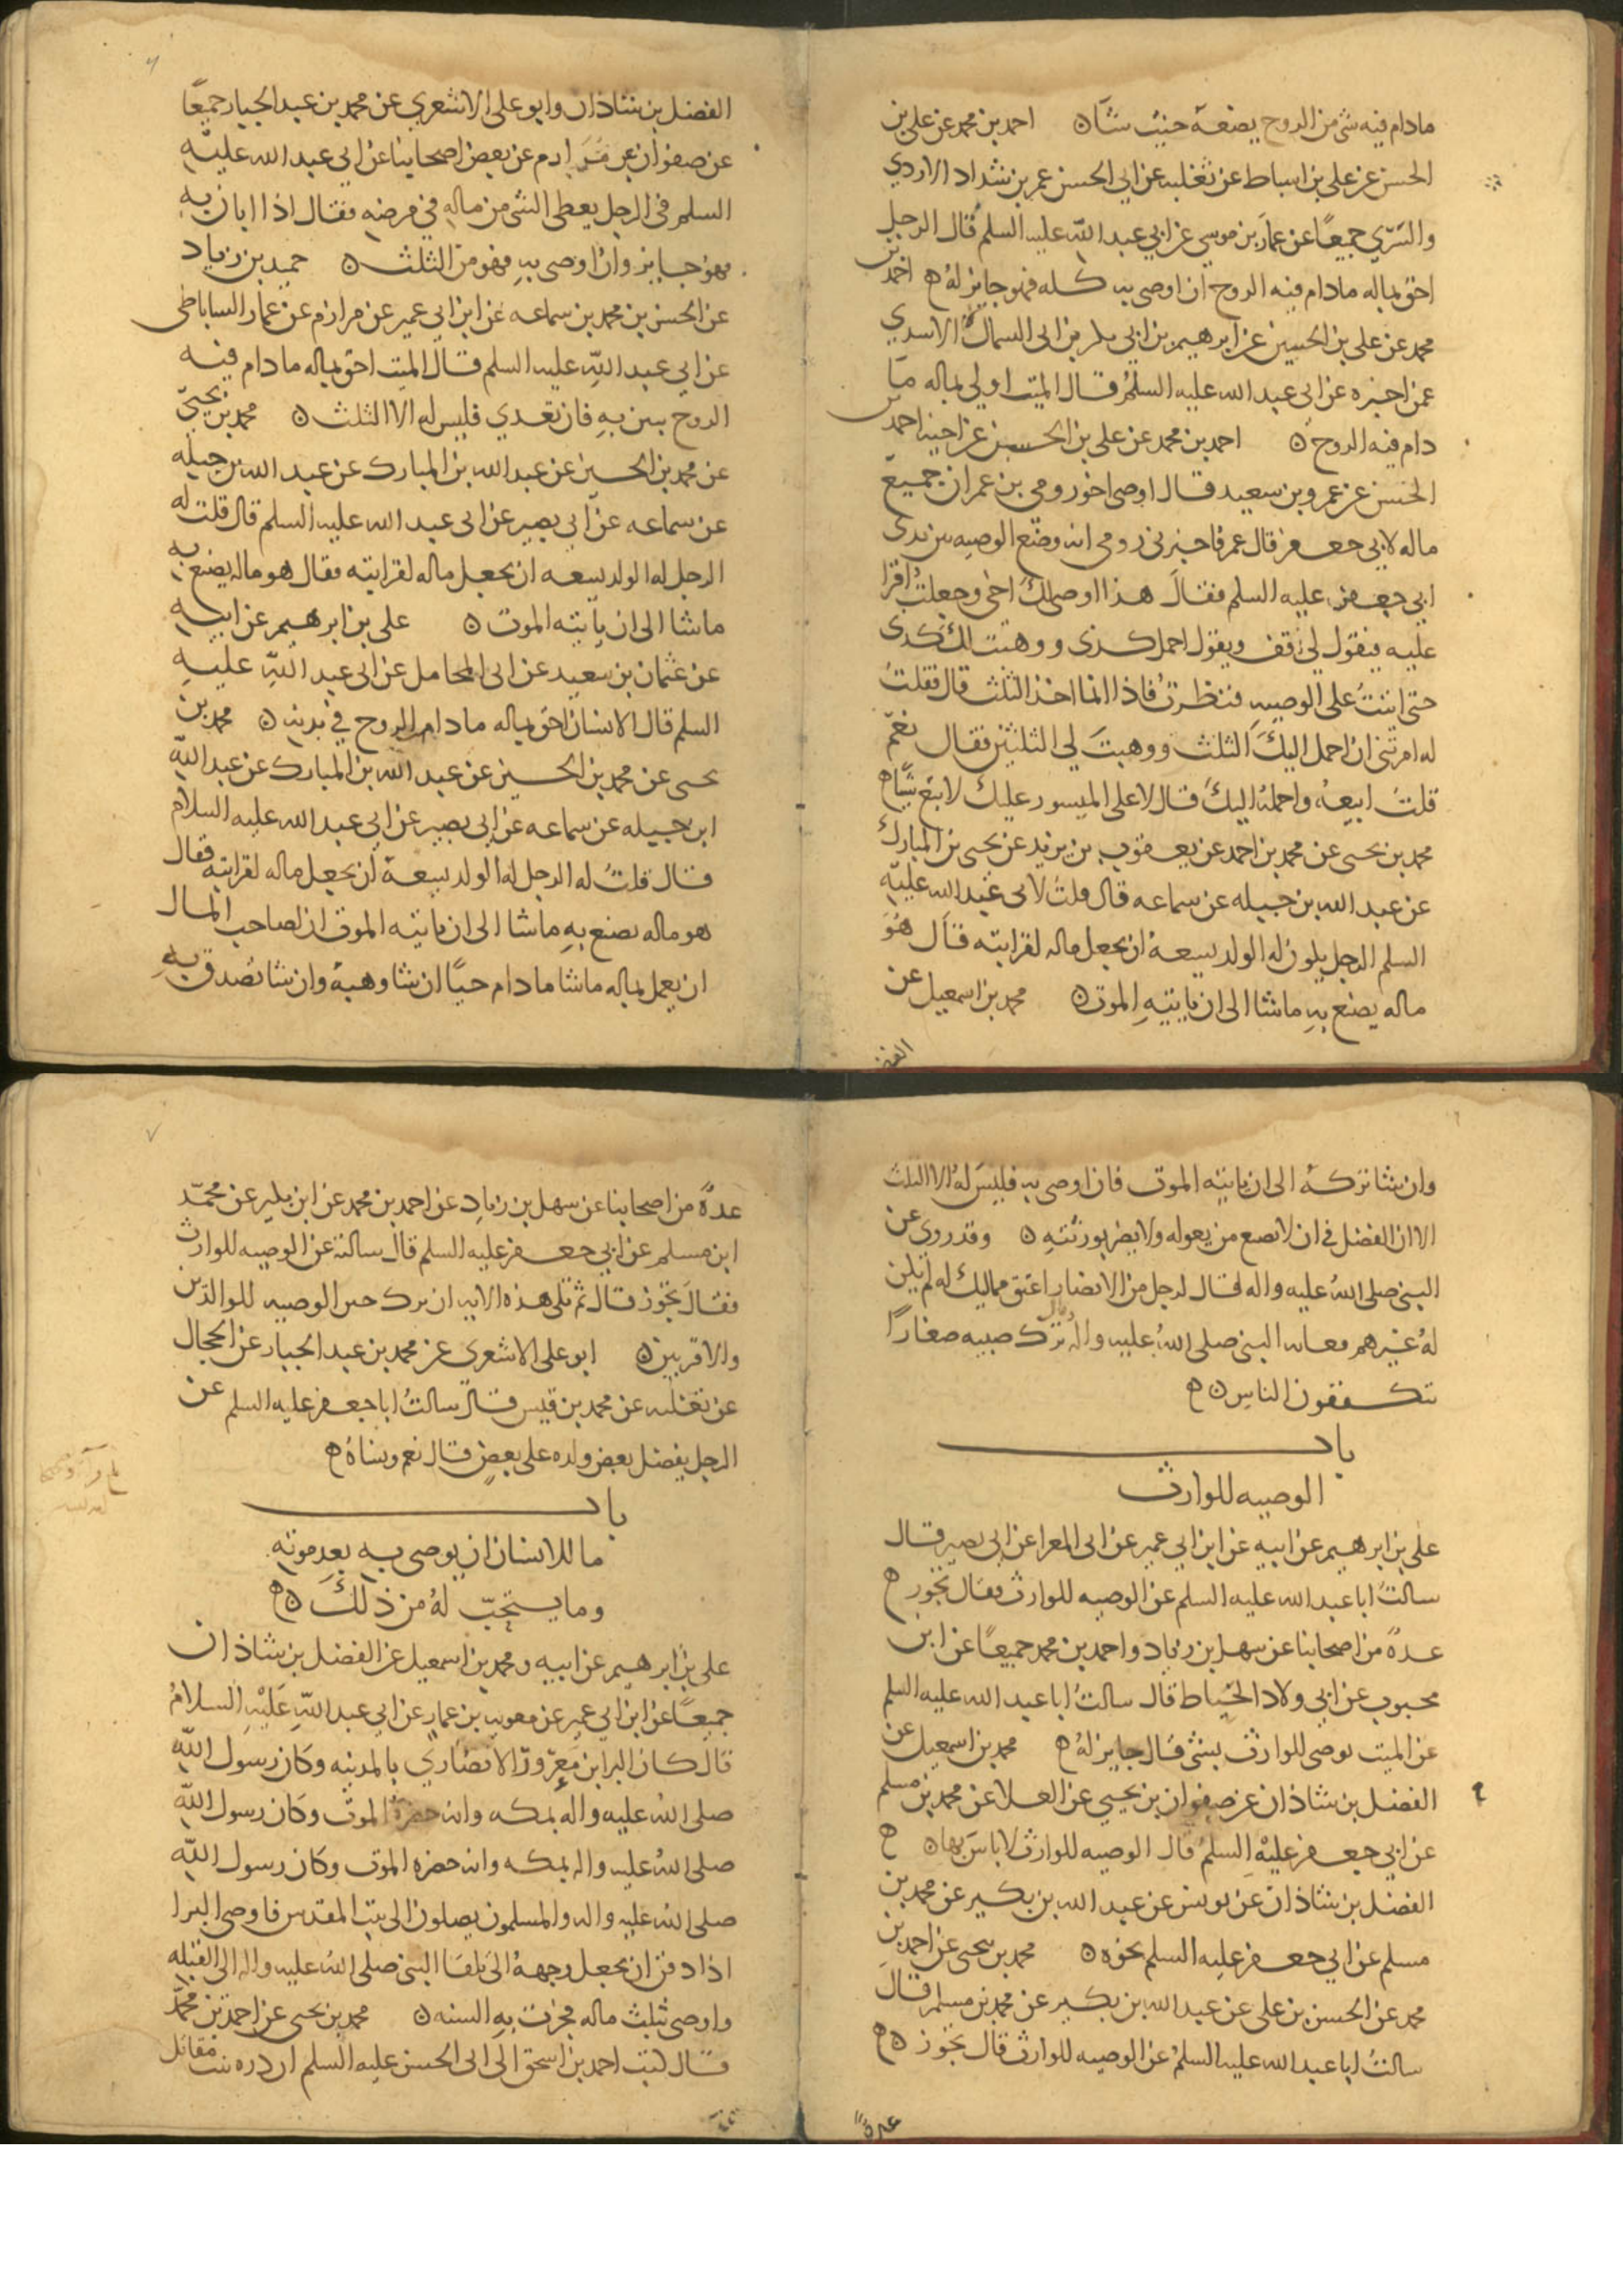 مادام فيه شى من الروح يضعه حيث شآ ں احمد بن محمد عن على بن
الحسن عن على بن اسباط عن ثعلبه عن ابى الحسن عمر بن شداد الازدي
والسرّي جميعًا عن عمار بن موسي عن ابي عبد الله عليه السلم قال الرجل
احق بماله مادام فيه الروح ان اوصى به كله فهو جايز له ه احمد بن
محمد عن على بن الحسين عن ابرهيم بن ابي بكر بن ابى السمال الاسدي
عمن اخبره عن ابى عبد الله عليه السلم قال الميت اولى بماله ما
دام فيه الروح ں احمد بن محمد عن على بن الحسين عن اخيه احمد بن
الحسن عن عمرو بن سعيد قال اوصى اخو رومى بن عمران جميع
ماله لابى جعفر قال عمر فاخبرنى رومى انه وضع الوصيه بين يدى
ابي جعفر عليه السلم فقال هذا اوصى لك اخى وجعلت اقرا
عليه فيقول لى قف ويقول احمل كذى ووهبت لك كذى
حتى اتيت على الوصيه فنظرت فاذا انما اخذ الثلث قال فقلت
له امرتنى ان احمل اليك الثلث ووهبت لي الثلثين فقال نعم
قلت ابيعه واحمله اليك قال لا على الميسور عليك لا تبع شيًا ه
محمد بن يحيى عن محمد بن احمد عن يعقوب بن يزيد عن يحيى بن المبارك
عن عبد الله بن جبله عن سماعه قال قلت لابى عبد الله عليه
السلم الرجل يكون له الولد يسعه ان يجعل ماله لقرابته قال هو
ماله يصنع به ما شا الى ان ياتيه الموت ں محمد بن اسمعيل عن
الفضل
الفضل بن شاذان وابو على الاشعري عن محمد بن عبد الجبار جميعًا
عن صفوان عن مرازم عن بعض اصحابنا عن ابي عبد الله عليه
السلم فى الرجل يعطى الشى من ماله في مرضه فقال اذا ابان به
فهو جايز وان اوصى به فهو من الثلث ں حميد بن زياد
عن الحسن بن محمد بن سماعه عن ابن ابي عمير عن مرازم عن عمار الساباطى
عن ابي عبد الله عليه السلم قال الميت احق بماله ما دام فيه
الروح يبين به فان تعدي فليس له الا الثلث ں محمد بن يحيى
عن محمد بن الحسين عن عبد الله بن المبارك عن عبد الله بن جبله
عن سماعه عن ابى بصير عن ابى عبد الله عليه السلم قال قلت له
الرجل له الولد يسعه ان يجعل ماله لقرابته فقال هو ماله يصنع به
ماشا الى ان ياتيه الموت ں على بن ابرهيم عن ابيه
عن عثمان بن سعيد عن ابى المحامل عن ابى عبد الله عليه
السلم قال الانسان احق بماله ما دام الروح في بدنه ں محمد بن
يحيى عن محمد بن الحسين عن عبد الله بن المبارك عن عبد الله
ابن جبيله عن سماعه عن ابى بصير عن ابي عبد الله عليه السلام
قال قلت له الرجل له الولد يسعه ان يجعل ماله لقرابته فقال
هو ماله يصنع به ماشا الى ان ياتيه الموت ان لصاحب المال
ان يعمل بماله ماشا ما دام حيًا ان شا وهبه وان شا تصدق به
وان شا تركه الى ان ياتيه الموت فان اوصى به فليس له الا الثلث
الا ان الفضل فى ان لا يضع من يعوله ولا يضر بورثته ں وقد روى عن
النبى صلى الله عليه واله قال لرجل من الانصار اعتق مماليك له لم يكن
له غيرهم فعابه النبى صلى الله عليه واله وقال ترك صبيه صغارًا
يتكففون الناس ں ه
باب
الوصيه للوارث
على بن ابرهيم عن ابيه عن ابن ابي عمير عن ابى المعرا عن ابى بصير قال
سالت ابا عبد الله عليه السلم عن الوصيه للوارث فقال تجوز ه
عدة من اصحابنا عن سهل بن زياد واحمد بن محمد جميعًا عن ابن
محبوب عن ابي ولاد الحنّاط قال سالت ابا عبد الله عليه السلم
عن الميت يوصى للوارث بشى قال جايز له ه محمد بن اسمعيل عن
الفضل بن شاذان عن صفوان بن يحيي عن العلا عن محمد بن مسلم
عن ابي جعفر عليه السلم قال الوصيه للوارث لا باس بها ں ه
الفضل بن شاذان عن يونس عن عبد الله بن بكير عن محمد بن
مسلم عن ابي جعفر عليه السلم نحوه ں محمد بن يحيى عن احمد بن
محمد عن الحسن بن على عن عبد الله بن بكير عن محمد بن مسلم قال
سالت ابا عبد الله عليه السلم عن الوصيه للوارث قال تجوز ں ه
عدة
عدة من اصحابنا عن سهل بن زياد عن احمد بن محمد عن ابن بكير عن محمد
ابن مسلم عن ابي جعفر عليه السلم قال سالته عن الوصيه للوارث
فقال تجوز قال ثم تلى هذه الايه ان ترك خيرا الوصيه للوالدين
والاقربين ں ابو على الاشعري عن محمد بن عبد الجبار عن الحجال
عن ثعلبه عن محمد بن قيس قال سالت ابا جعفر عليه السلم عن
الرجل يفضل بعض ولده على بعض قال نعم ونساه ه
باب
ما للانسان ان يوصى به بعد موته
وما يستحبّ له من ذلك ں ه
على بن ابرهيم عن ابيه ومحمد بن اسمعيل عن الفضل بن شاذان
جميعًا عن ابن ابي عمير عن معويه بن عمار عن ابي عبد الله عليه السلام
قال كان البرا بن معرور الانصاري بالمدينه وكان رسول الله
صلى الله عليه واله بمكه وانه حضره الموت وكان رسول الله
صلى الله عليه واله بمكه وانه حضره الموت وكان رسول الله
صلى الله عليه واله والمسلمون يصلون الى بيت المقدس فاوصى البرا
اذا دفن ان يجعل وجهه الى تلقا النبى صلى الله عليه واله الى القبله
واوصى بثلث ماله فجرت به السنه ں محمد بن يحيى عن احمد بن محمد
قال كتب احمد بن اسحق الى ابى الحسن عليه السلم ان دره بنت مقاتل